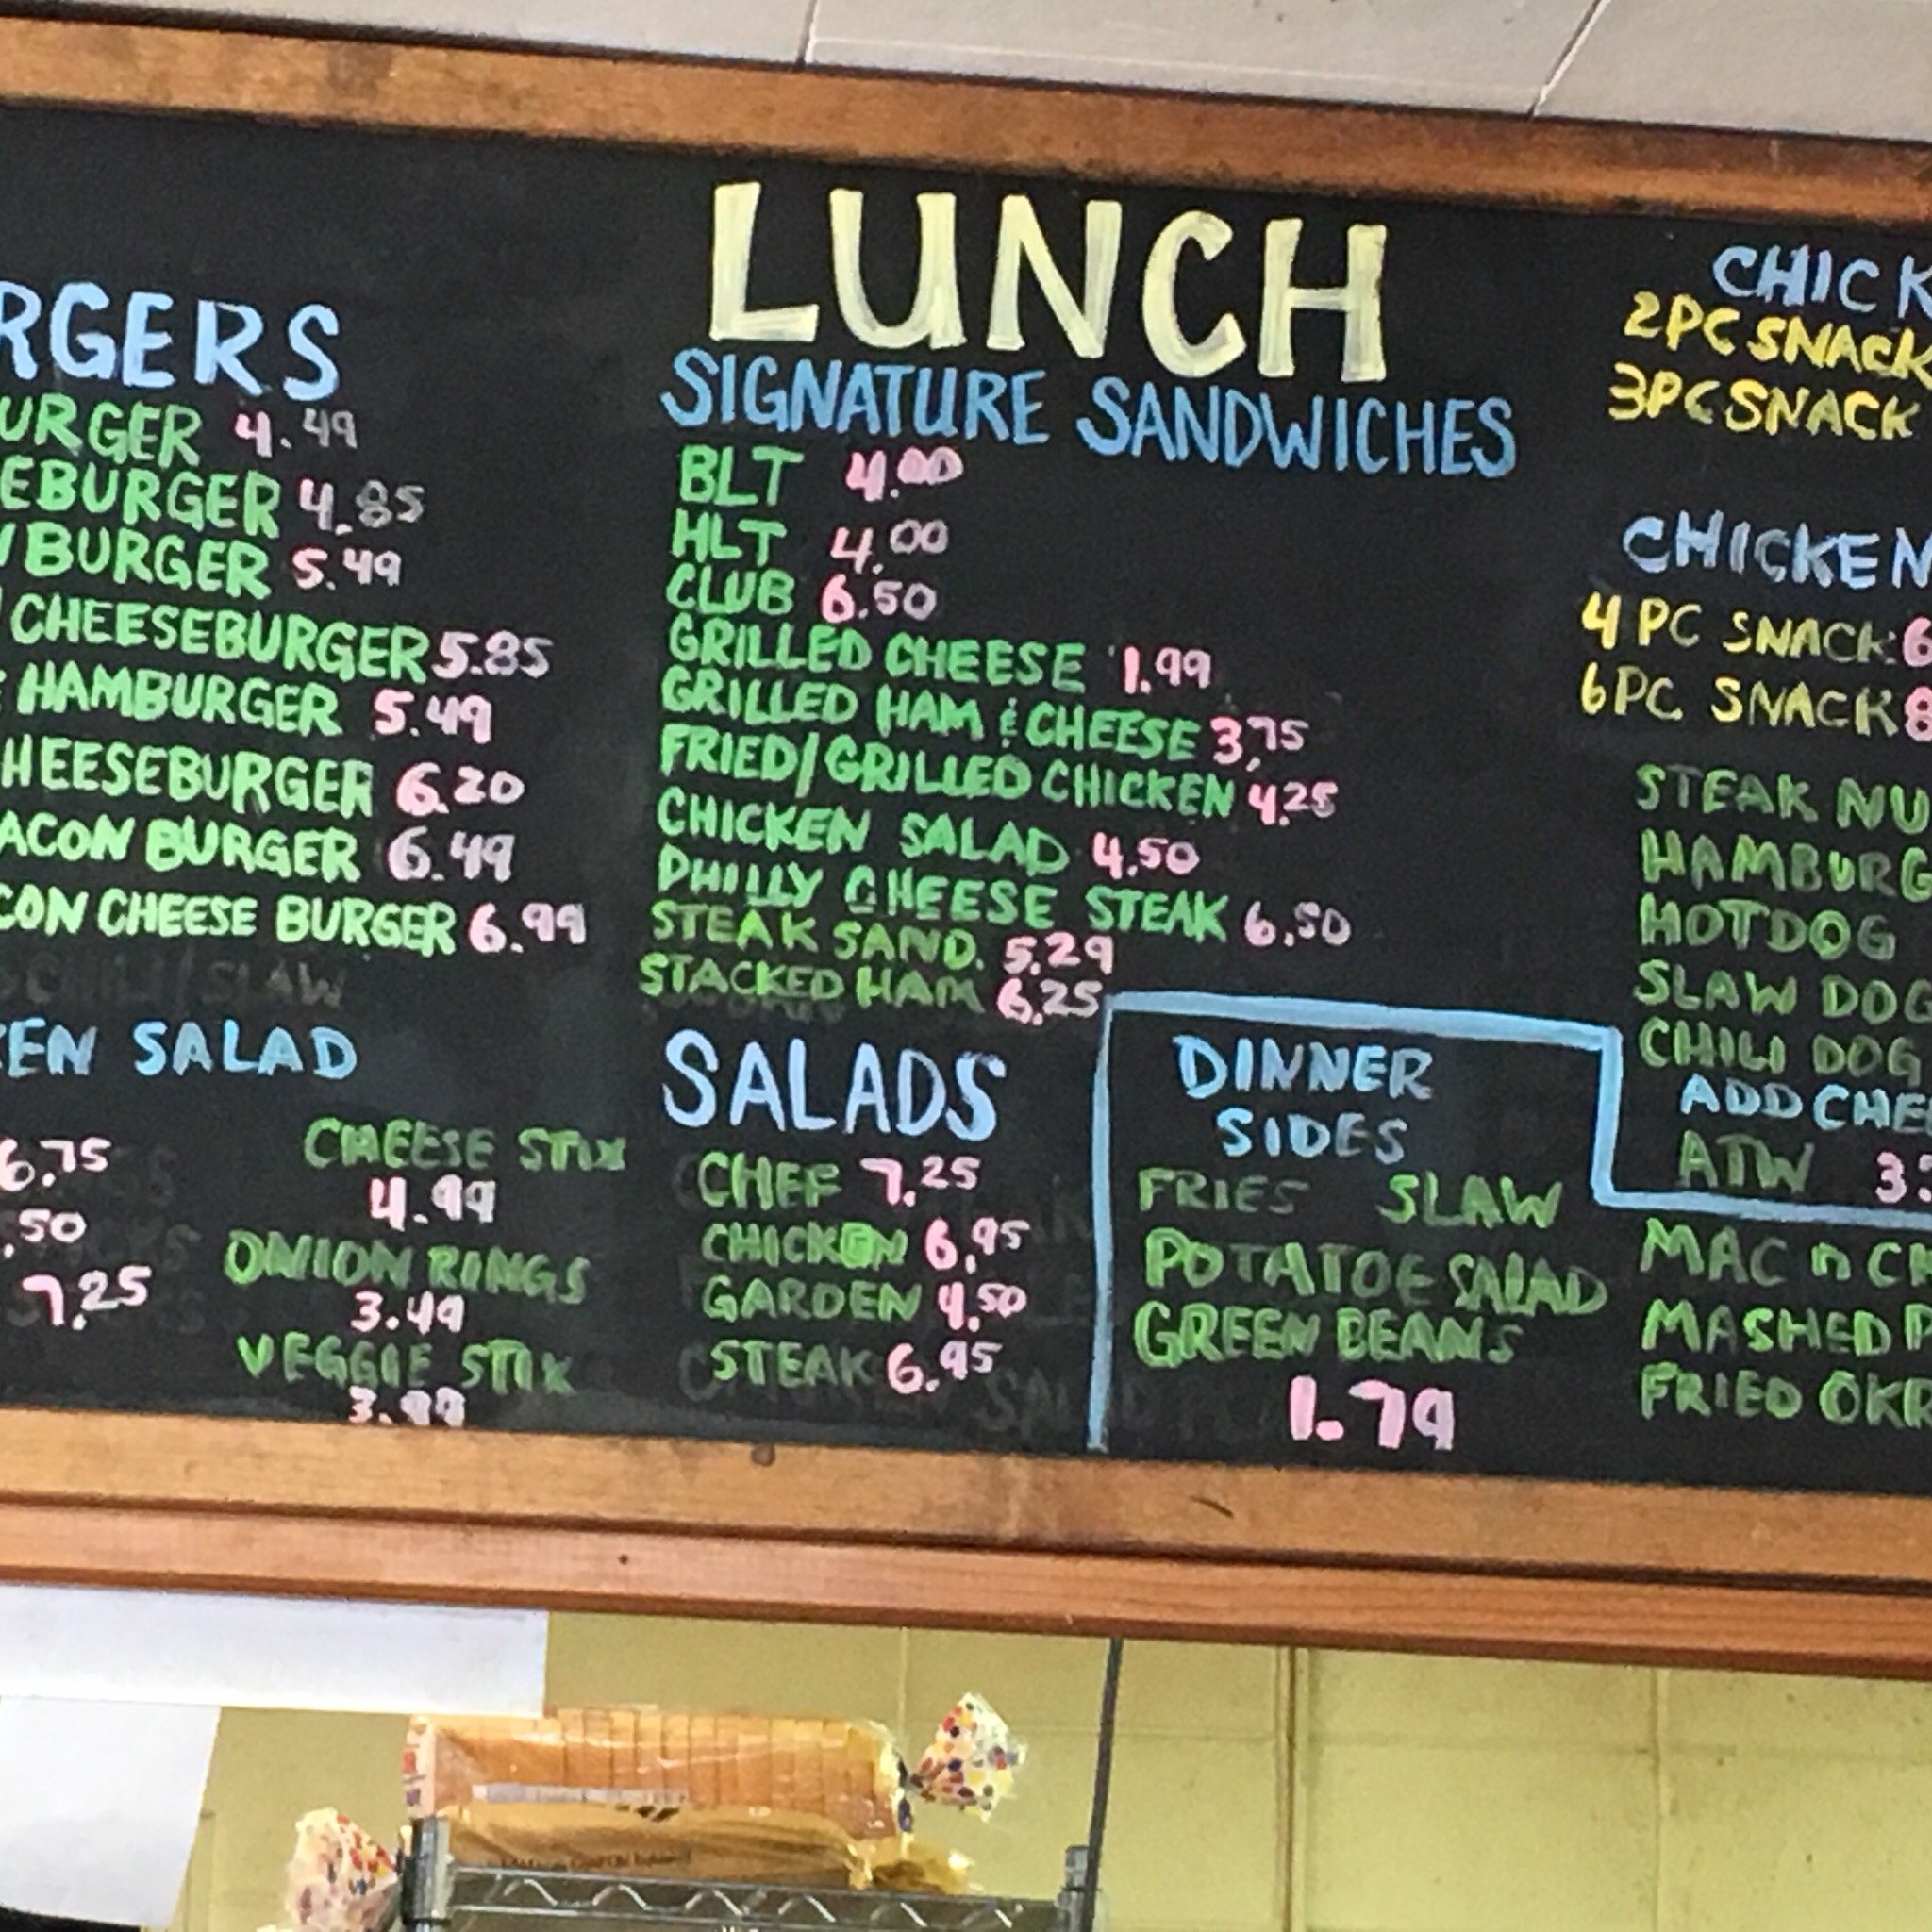 LUNCH
RGERS
URGER 4.49
EBURGER 4.85
BURGER 5.49
CHEESEBURGER 5.85
HAMBURGER 5.49
HEESEBURGER 6.20
ACON BURGER 6.49
CON CHEESE BURGER 6.99
CHILI/SLAW
EN SALAD
6.75
.50
7.25
CHEESE STIX
4.99
ONION RINGS
3.49
VEGGIE STIX
3.99
SIGNATURE SANDWICHES
BLT 4.00
HLT 4.00
CLUB 6.50
GRILLED CHEESE 1.99
GRILLED HAM & CHEESE 3.75
FRIED/GRILLED CHICKEN 4.25
CHICKEN SALAD 4.50
PHILLY CHEESE STEAK 6.50
STEAK SAND. 5.29
STACKED HAM 6.25
SALADS
CHEF 7.25
CHICKEN 6.95
GARDEN 4.50
STEAK 6.95
DINNER
SIDES
FRIES SLAW
POTATOE SALAD
GREEN BEANS
1.79
CHICK
2PC SNACK
3PC SNACK
CHICKEN
4 PC SNACK 6
6 PC SNACK 8
STEAK NU
HAMBURG
HOTDOG
SLAW DOG
CHILI DOG
ADD CHE
ATW 3
MAC n CH
MASHED P
FRIED OKR